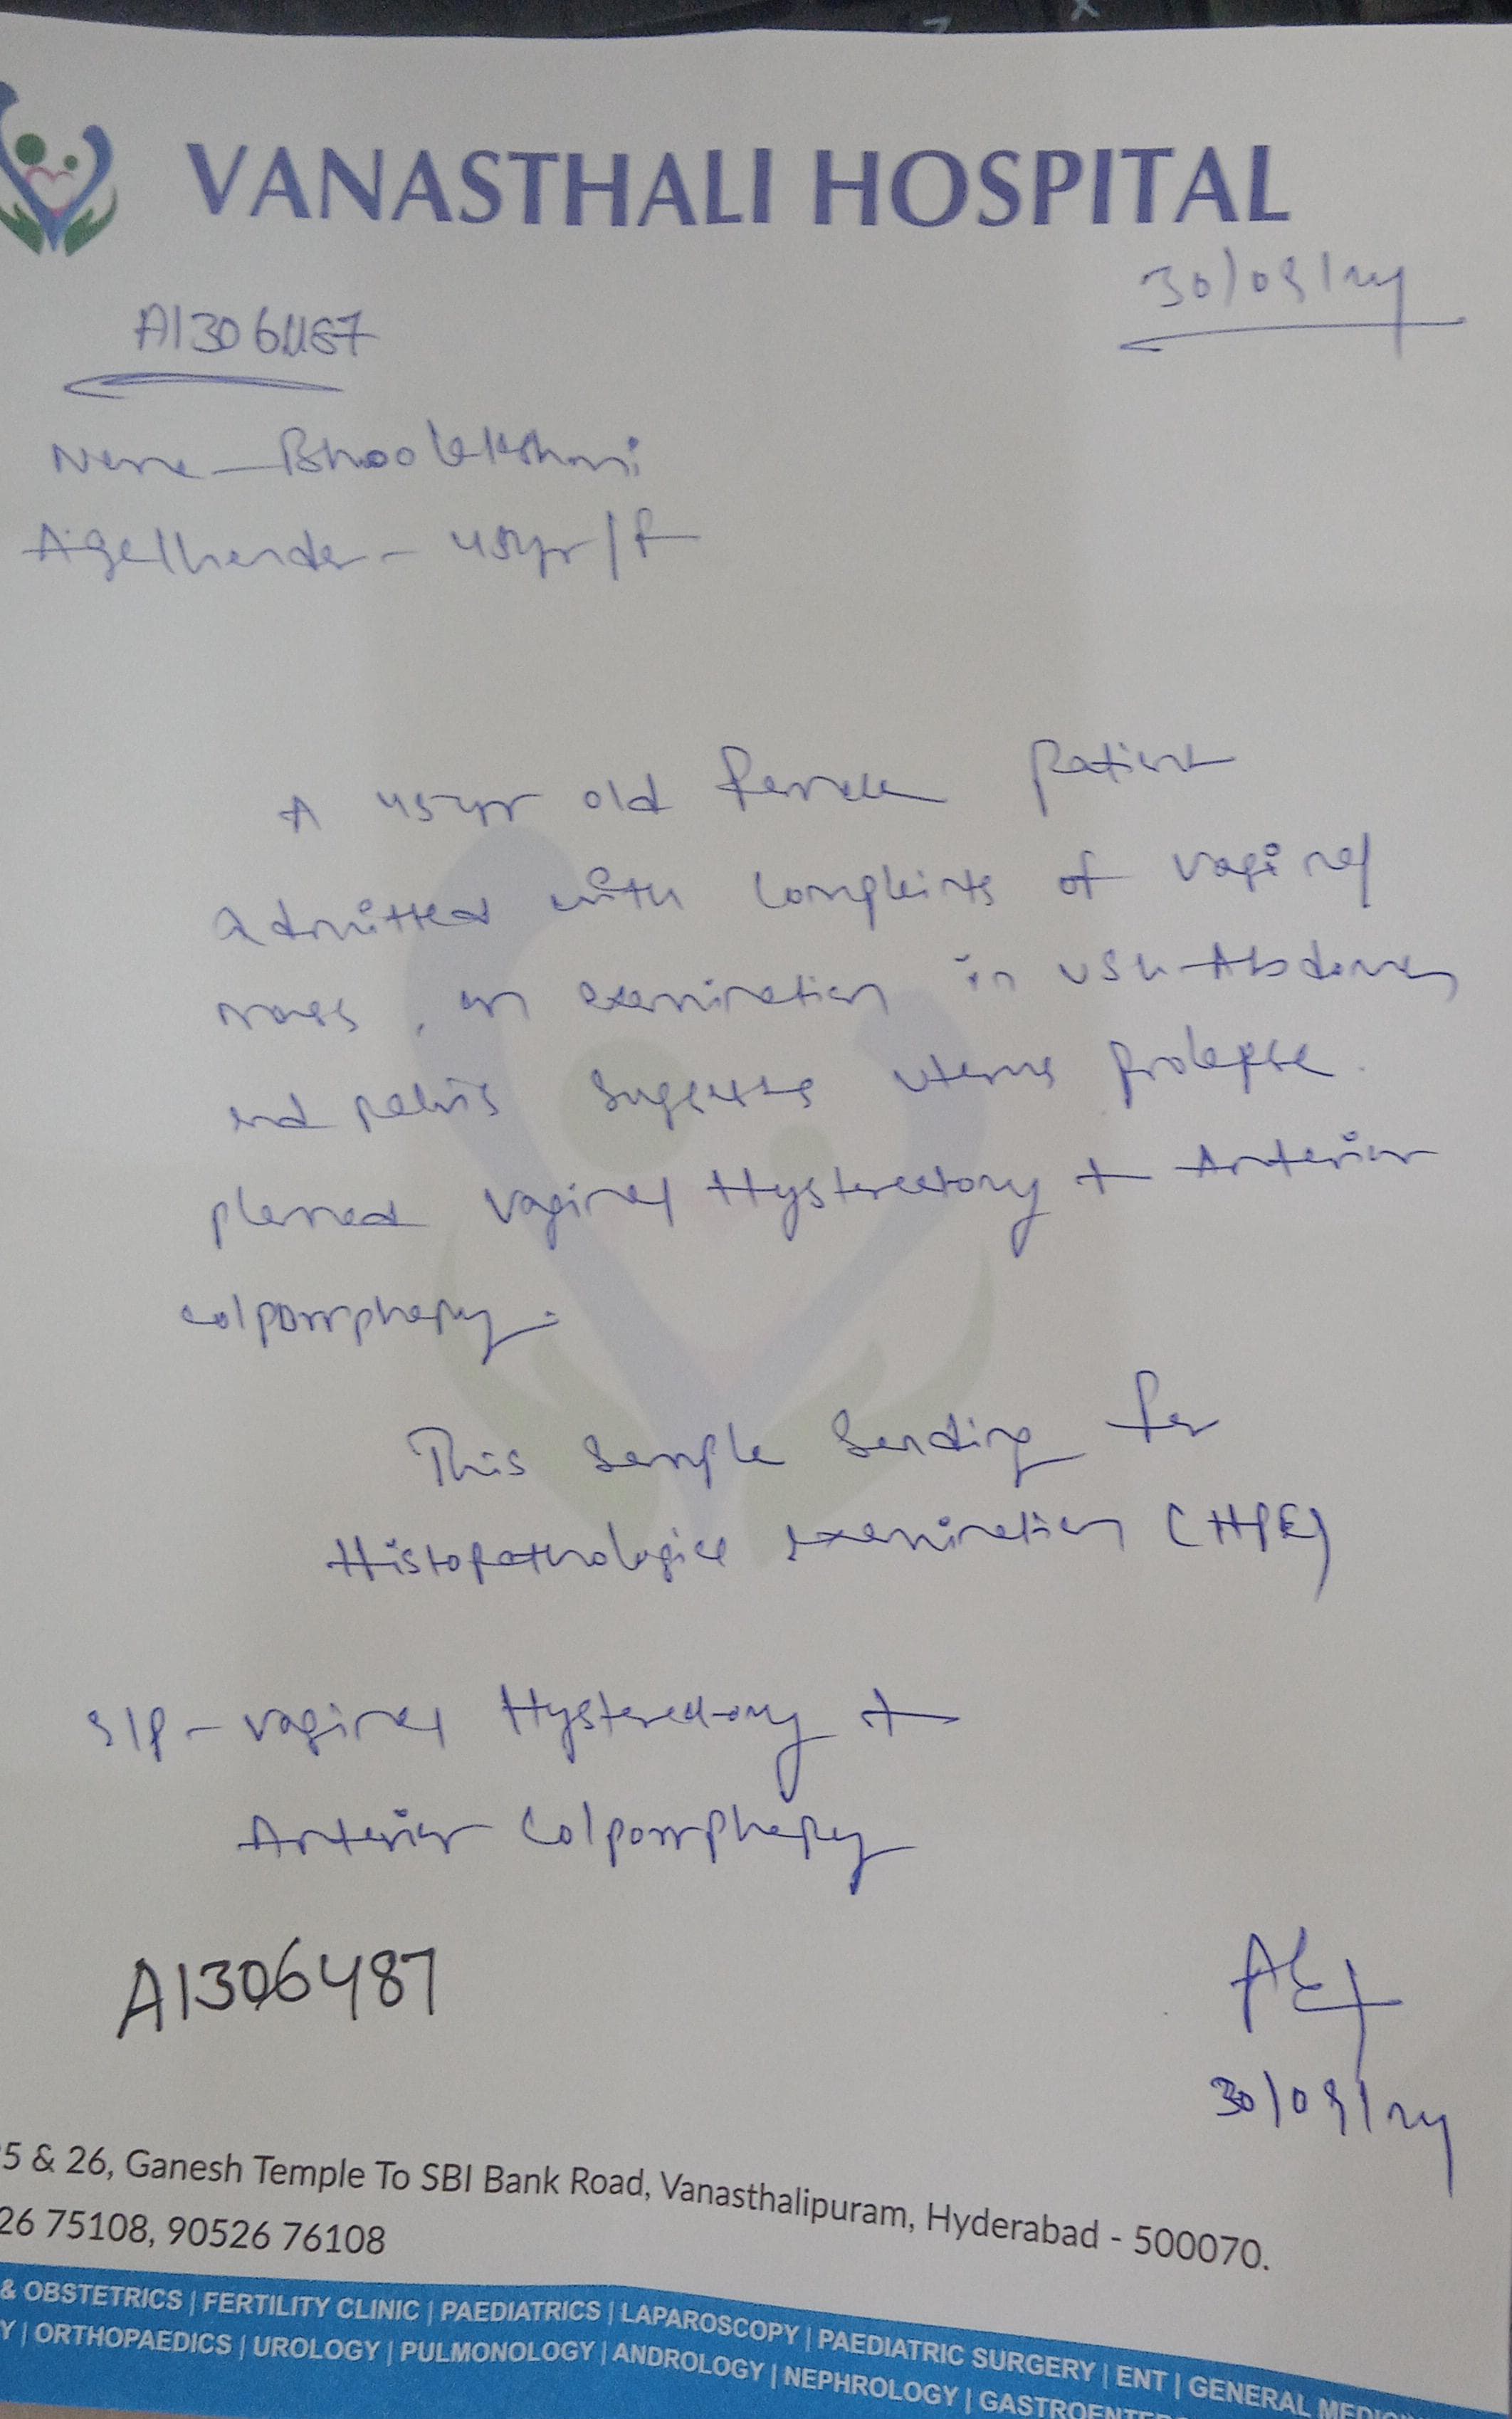 VANASTHALI HOSPITAL
30/09/24
A1306487
Name - Bhoolakshmi
Age/Gender - 45yr/F
A 45yr old female patient
admitted with complaints of vaginal
mass, on examination in USG-Abdomen
and pelvis suggests uterus prolapse.
planned vaginal Hysterectomy + Anterior
colporrphapy.
This sample sending for
Histopathologica examination (HPE)
S/P - vaginal Hysterectomy +
Anterior Colporrphapy
A1306487
30/09/24
5 & 26, Ganesh Temple To SBI Bank Road, Vanasthalipuram, Hyderabad - 500070.
26 75108, 90526 76108
& OBSTETRICS | FERTILITY CLINIC | PAEDIATRICS | LAPAROSCOPY | PAEDIATRIC SURGERY | ENT | GENERAL MEDIC
Y | ORTHOPAEDICS | UROLOGY | PULMONOLOGY | ANDROLOGY | NEPHROLOGY | GASTROENTER